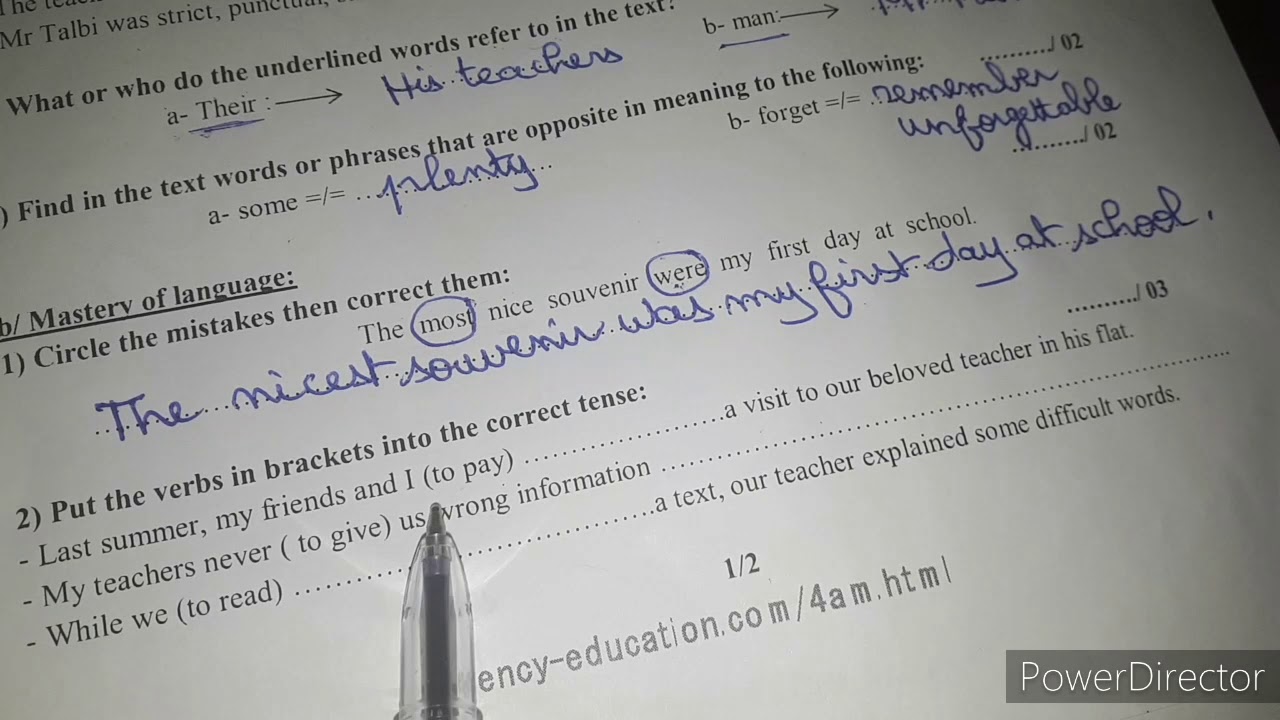 The teac
Mr Talbi was strict, punctual,
What or who do the underlined words refer to in the text?
a- Their : His teachers b- man:
........../ 02
) Find in the text words or phrases that are opposite in meaning to the following:
a- some =/= ... plenty ... b- forget =/= ... remember
unforgettable
........../ 02
b/ Mastery of language:
1) Circle the mistakes then correct them:
The most nice souvenir were my first day at school.
The nicest souvenir was my first day at school.
........./ 03
2) Put the verbs in brackets into the correct tense:
- Last summer, my friends and I (to pay) .........................a visit to our beloved teacher in his flat.
- My teachers never ( to give) us wrong information ..........................................................................
- While we (to read) ..............................................a text, our teacher explained some difficult words.
1/2
ency-education.com/4am.html
PowerDirector